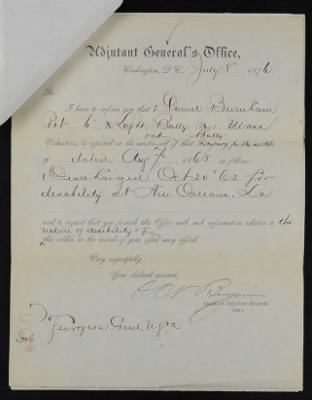 Adjutant General's Office,
Washington, D.C., July 8" 1876
Sir:
I have to inform you that Daniel Burnham
Pvt 6" Light Batty Mass
Volunteers, is reported on the muster-roll of that
dated Aug 1865, as follows:
Discharged Oct 20" 62 for
disability at New Orleans, La
and to request that you furnish this Office with such information relative to the
nature of disability of
this soldier as the records of your office may afford.
Very respectfully,
Your obedient servant,
Assistant Adjutant General.
To
Surgeon Genl U.S.A